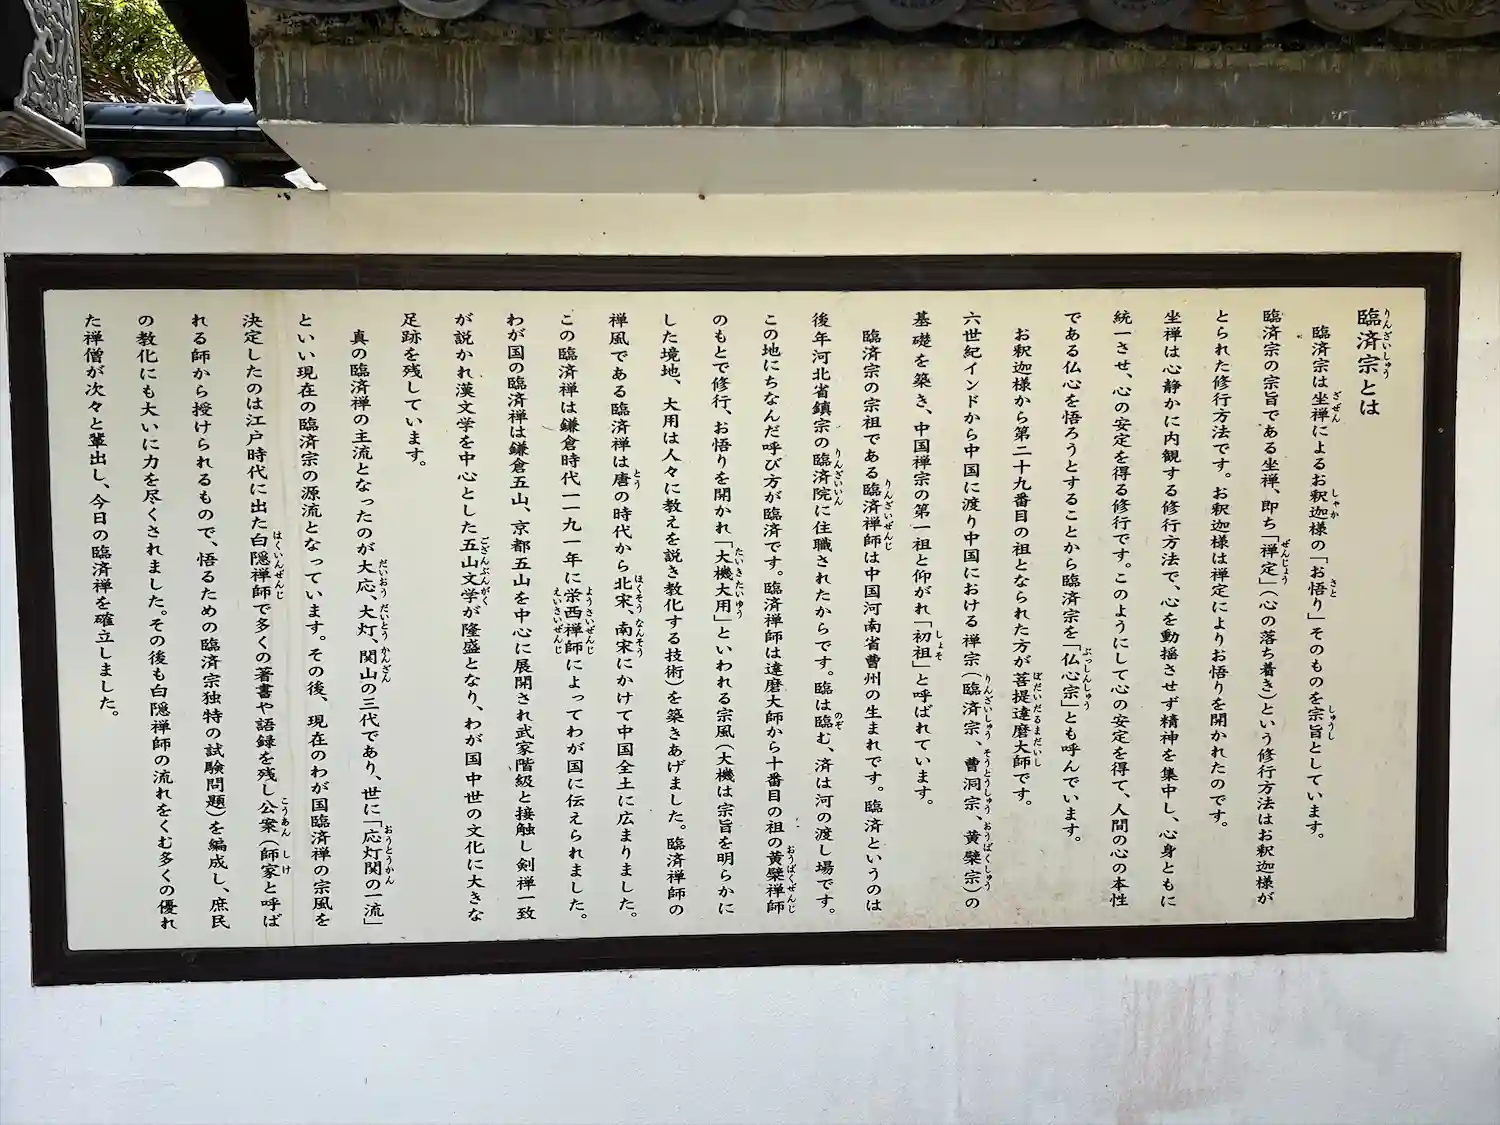 臨済宗とは
臨済宗は坐禅によるお釈迦様の「お悟り」そのものを宗旨としています。
臨済宗の宗旨である坐禅、即ち「禅定」（心の落ち着き）という修行方法はお釈迦様が
とられた修行方法です。お釈迦様は禅定によりお悟りを開かれたのです。
坐禅は心静かに内観する修行方法で、心を動揺させず精神を集中し、心身ともに
統一させ、心の安定を得る修行です。このようにして心の安定を得て、人間の心の本性
である仏心を悟ろうとすることから臨済宗を「仏心宗」とも呼んでいます。
お釈迦様から第二十九番目の祖となられた方が菩提達磨大師です。
六世紀インドから中国に渡り中国における禅宗（臨済宗、曹洞宗、黄檗宗）の
基礎を築き、中国禅宗の第一祖と仰がれ「初祖」と呼ばれています。
臨済宗の宗祖である臨済禅師は中国河南省曹州の生まれです。臨済というのは
後年河北省鎮宗の臨済院に住職されたからです。臨は臨む、済は河の渡し場です。
この地にちなんだ呼び方が臨済です。臨済禅師は達磨大師から十番目の祖の黄檗禅師
のもとで修行、お悟りを開かれ「大機大用」といわれる宗風（大機は宗旨を明らかに
した境地、大用は人々に教えを説き教化する技術）を築きあげました。臨済禅師の
禅風である臨済禅は唐の時代から北宋、南宋にかけて中国全土に広まりました。
この臨済禅は鎌倉時代一一九一年に栄西禅師によってわが国に伝えられました。
わが国の臨済禅は鎌倉五山、京都五山を中心に展開され武家階級と接触し剣禅一致
が説かれ漢文学を中心とした五山文学が隆盛となり、わが国中世の文化に大きな
足跡を残しています。
真の臨済禅の主流となったのが大応、大灯、関山の三代であり、世に「応灯関の一流」
といい現在の臨済宗の源流となっています。その後、現在のわが国臨済禅の宗風を
決定したのは江戸時代に出た白隠禅師で多くの著書や語録を残し公案（師家と呼ば
れる師から授けられるもので、悟るための臨済宗独特の試験問題）を編成し、庶民
の教化にも大いに力を尽くされました。その後も白隠禅師の流れをくむ多くの優れ
た禅僧が次々と輩出し、今日の臨済禅を確立しました。